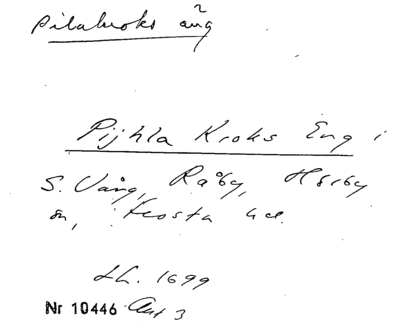 Pilakroks äng
Pijhla Kroks Eng i
S. Vång, Råby, Hörby
sn, Frosta hd.
LL. 1699
Nr 10446 Akt 3